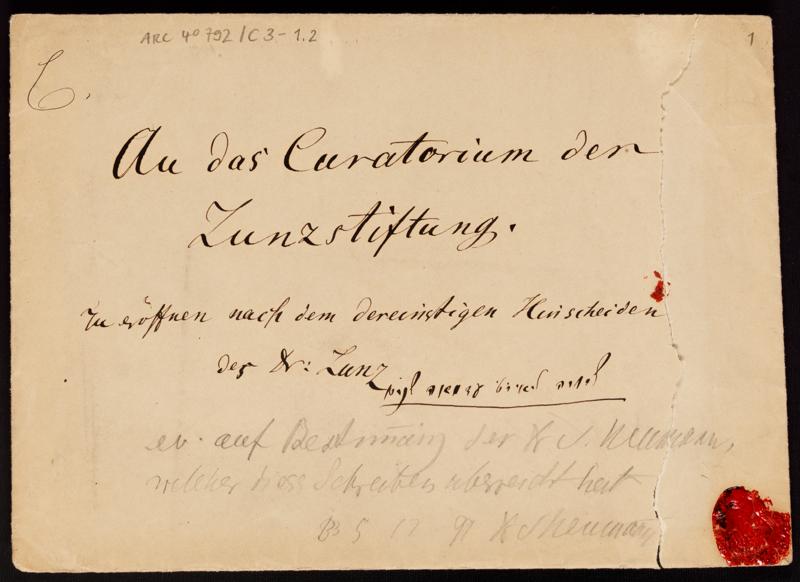 ARC 4° 792/C3-1.2
1
C.
An das Curatorium der
Zunzstiftung.
Zu eröffnen nach dem dereinstigen Hinscheiden
des Dr: Zunz
ev. auf Bestimmung der Dr S. Neumann,
welcher diess Schreiben überreicht hat
B 5 12 91 Dr S Neumann